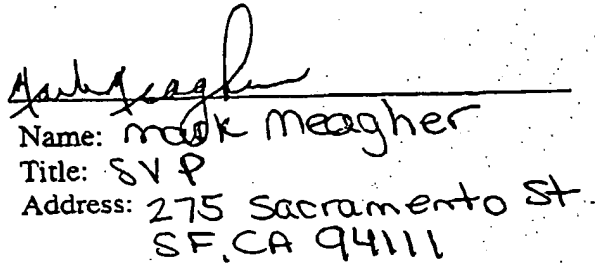 Mark Meagher
Name: Mark Meagher
Title: SVP
Address: 275 Sacramento St
SF, CA 94111